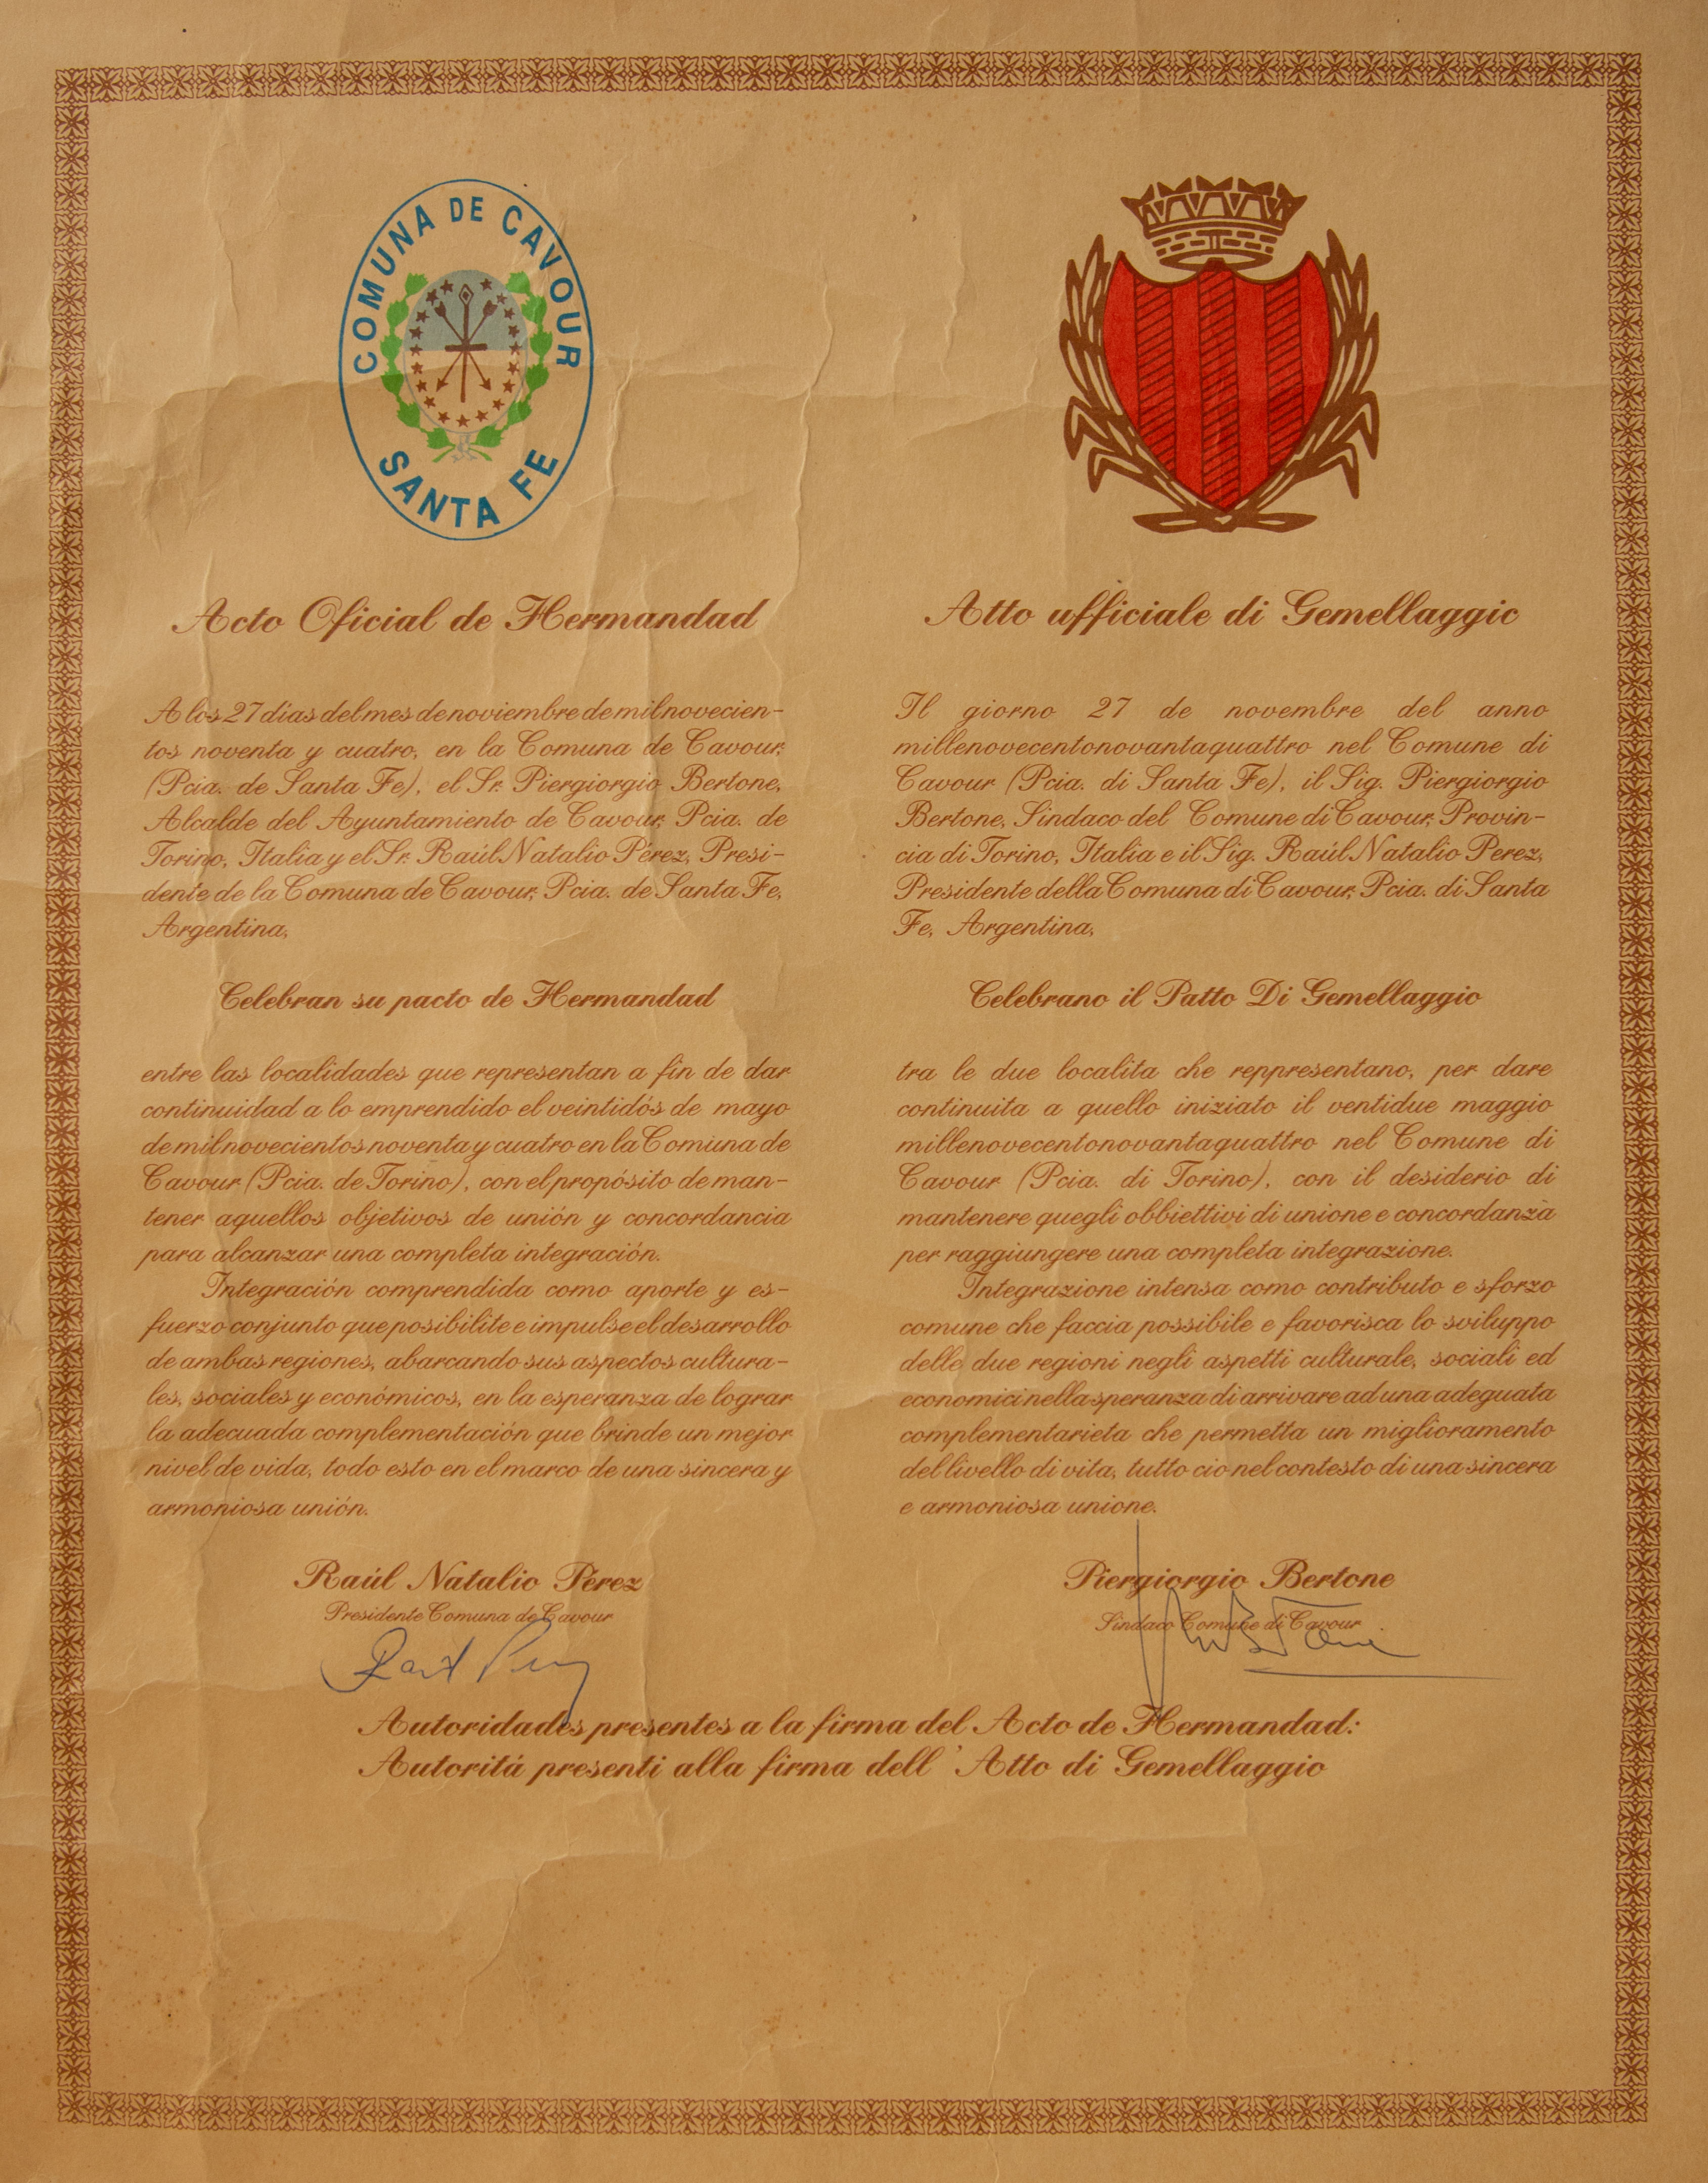 COMUNA DE CAVOUR
SANTA FE
Acto Oficial de Hermandad
A los 27 días del mes de noviembre de mil novecien-
tos noventa y cuatro, en la Comuna de Cavour,
(Pcia. de Santa Fe), el Sr. Piergiorgio Bertone,
Alcalde del Ayuntamiento de Cavour, Pcia. de
Torino, Italia y el Sr. Raúl Natalio Pérez, Presi-
dente de la Comuna de Cavour, Pcia. de Santa Fe,
Argentina,
Celebran su pacto de Hermandad
entre las localidades que representan a fin de dar
continuidad a lo emprendido el veintidós de mayo
de mil novecientos noventa y cuatro en la Comuna de
Cavour (Pcia. de Torino), con el propósito de man-
tener aquellos objetivos de unión y concordancia
para alcanzar una completa integración.
Integración comprendida como aporte y es-
fuerzo conjunto que posibilite e impulse el desarrollo
de ambas regiones, abarcando sus aspectos cultura-
les, sociales y económicos, en la esperanza de lograr
la adecuada complementación que brinde un mejor
nivel de vida, todo esto en el marco de una sincera y
armoniosa unión.
Raúl Natalio Pérez
Presidente Comuna de Cavour
Atto ufficiale di Gemellaggio
Il giorno 27 de novembre del anno
millenovecentonovantaquattro nel Comune di
Cavour (Pcia. di Santa Fe), il Sig. Piergiorgio
Bertone, Sindaco del Comune di Cavour, Provin-
cia di Torino, Italia e il Sig. Raúl Natalio Perez,
Presidente della Comuna di Cavour, Pcia. di Santa
Fe, Argentina,
Celebrano il Patto Di Gemellaggio
tra le due localita che reppresentano, per dare
continuita a quello iniziato il ventidue maggio
millenovecentonovantaquattro nel Comune di
Cavour (Pcia. di Torino), con il desiderio di
mantenere quegli obbiettivi di unione e concordanza
per raggiungere una completa integrazione.
Integrazione intensa como contributo e sforzo
comune che faccia possibile e favorisca lo sviluppo
delle due regioni negli aspetti culturale, sociali ed
economici nella speranza di arrivare ad una adeguata
complementarieta che permetta un miglioramento
del livello di vita, tutto cio nel contesto di una sincera
e armoniosa unione.
Piergiorgio Bertone
Sindaco Comune di Cavour
Autoridades presentes a la firma del Acto de Hermandad:
Autoritá presenti alla firma dell' Atto di Gemellaggio